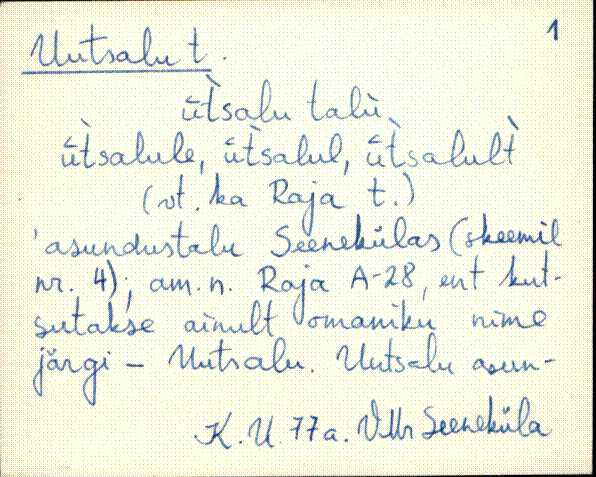 1
Uutsalu t.
ūtsalu talu
ūtsalule, ūtsalul, ūtsalult
(vt. ka Raja t.)
asundustalu Seenekülas (skeemil
nr. 4); am. n. Raja A-28, ent kut-
sutakse ainult omaniku nime
järgi – Uutsalu. Uutsalu asun-
K. U. 77a. VMr Seeneküla